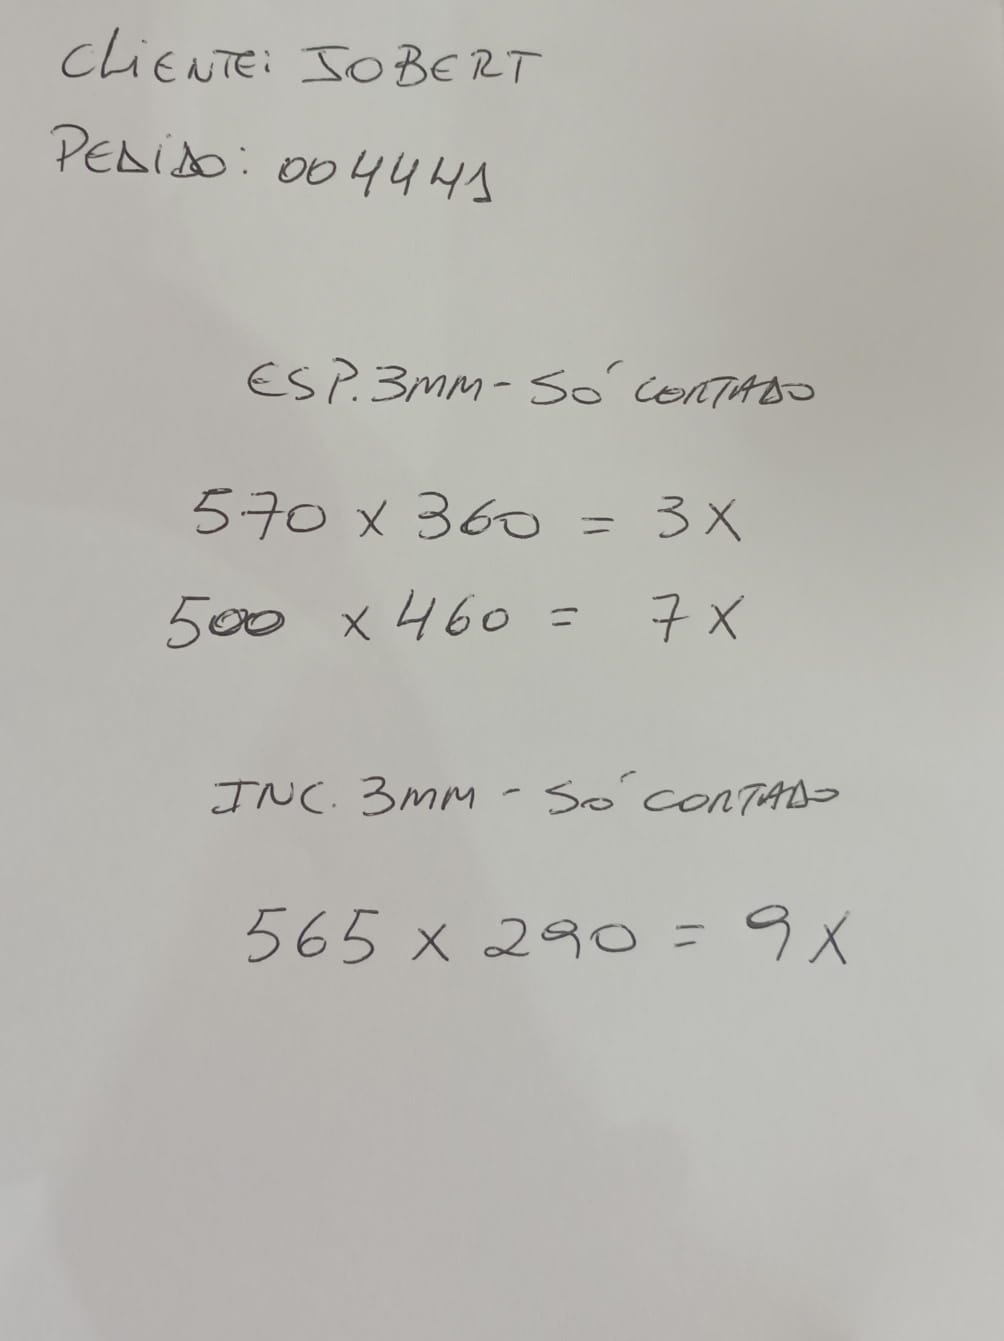 CLIENTE: JOBERT
PEDIDO: 004441
ESP. 3MM - SÓ CORTADO
570 X 360 = 3X
500 X 460 = 7X
INC. 3MM - SÓ CORTADO
565 X 290 = 9X